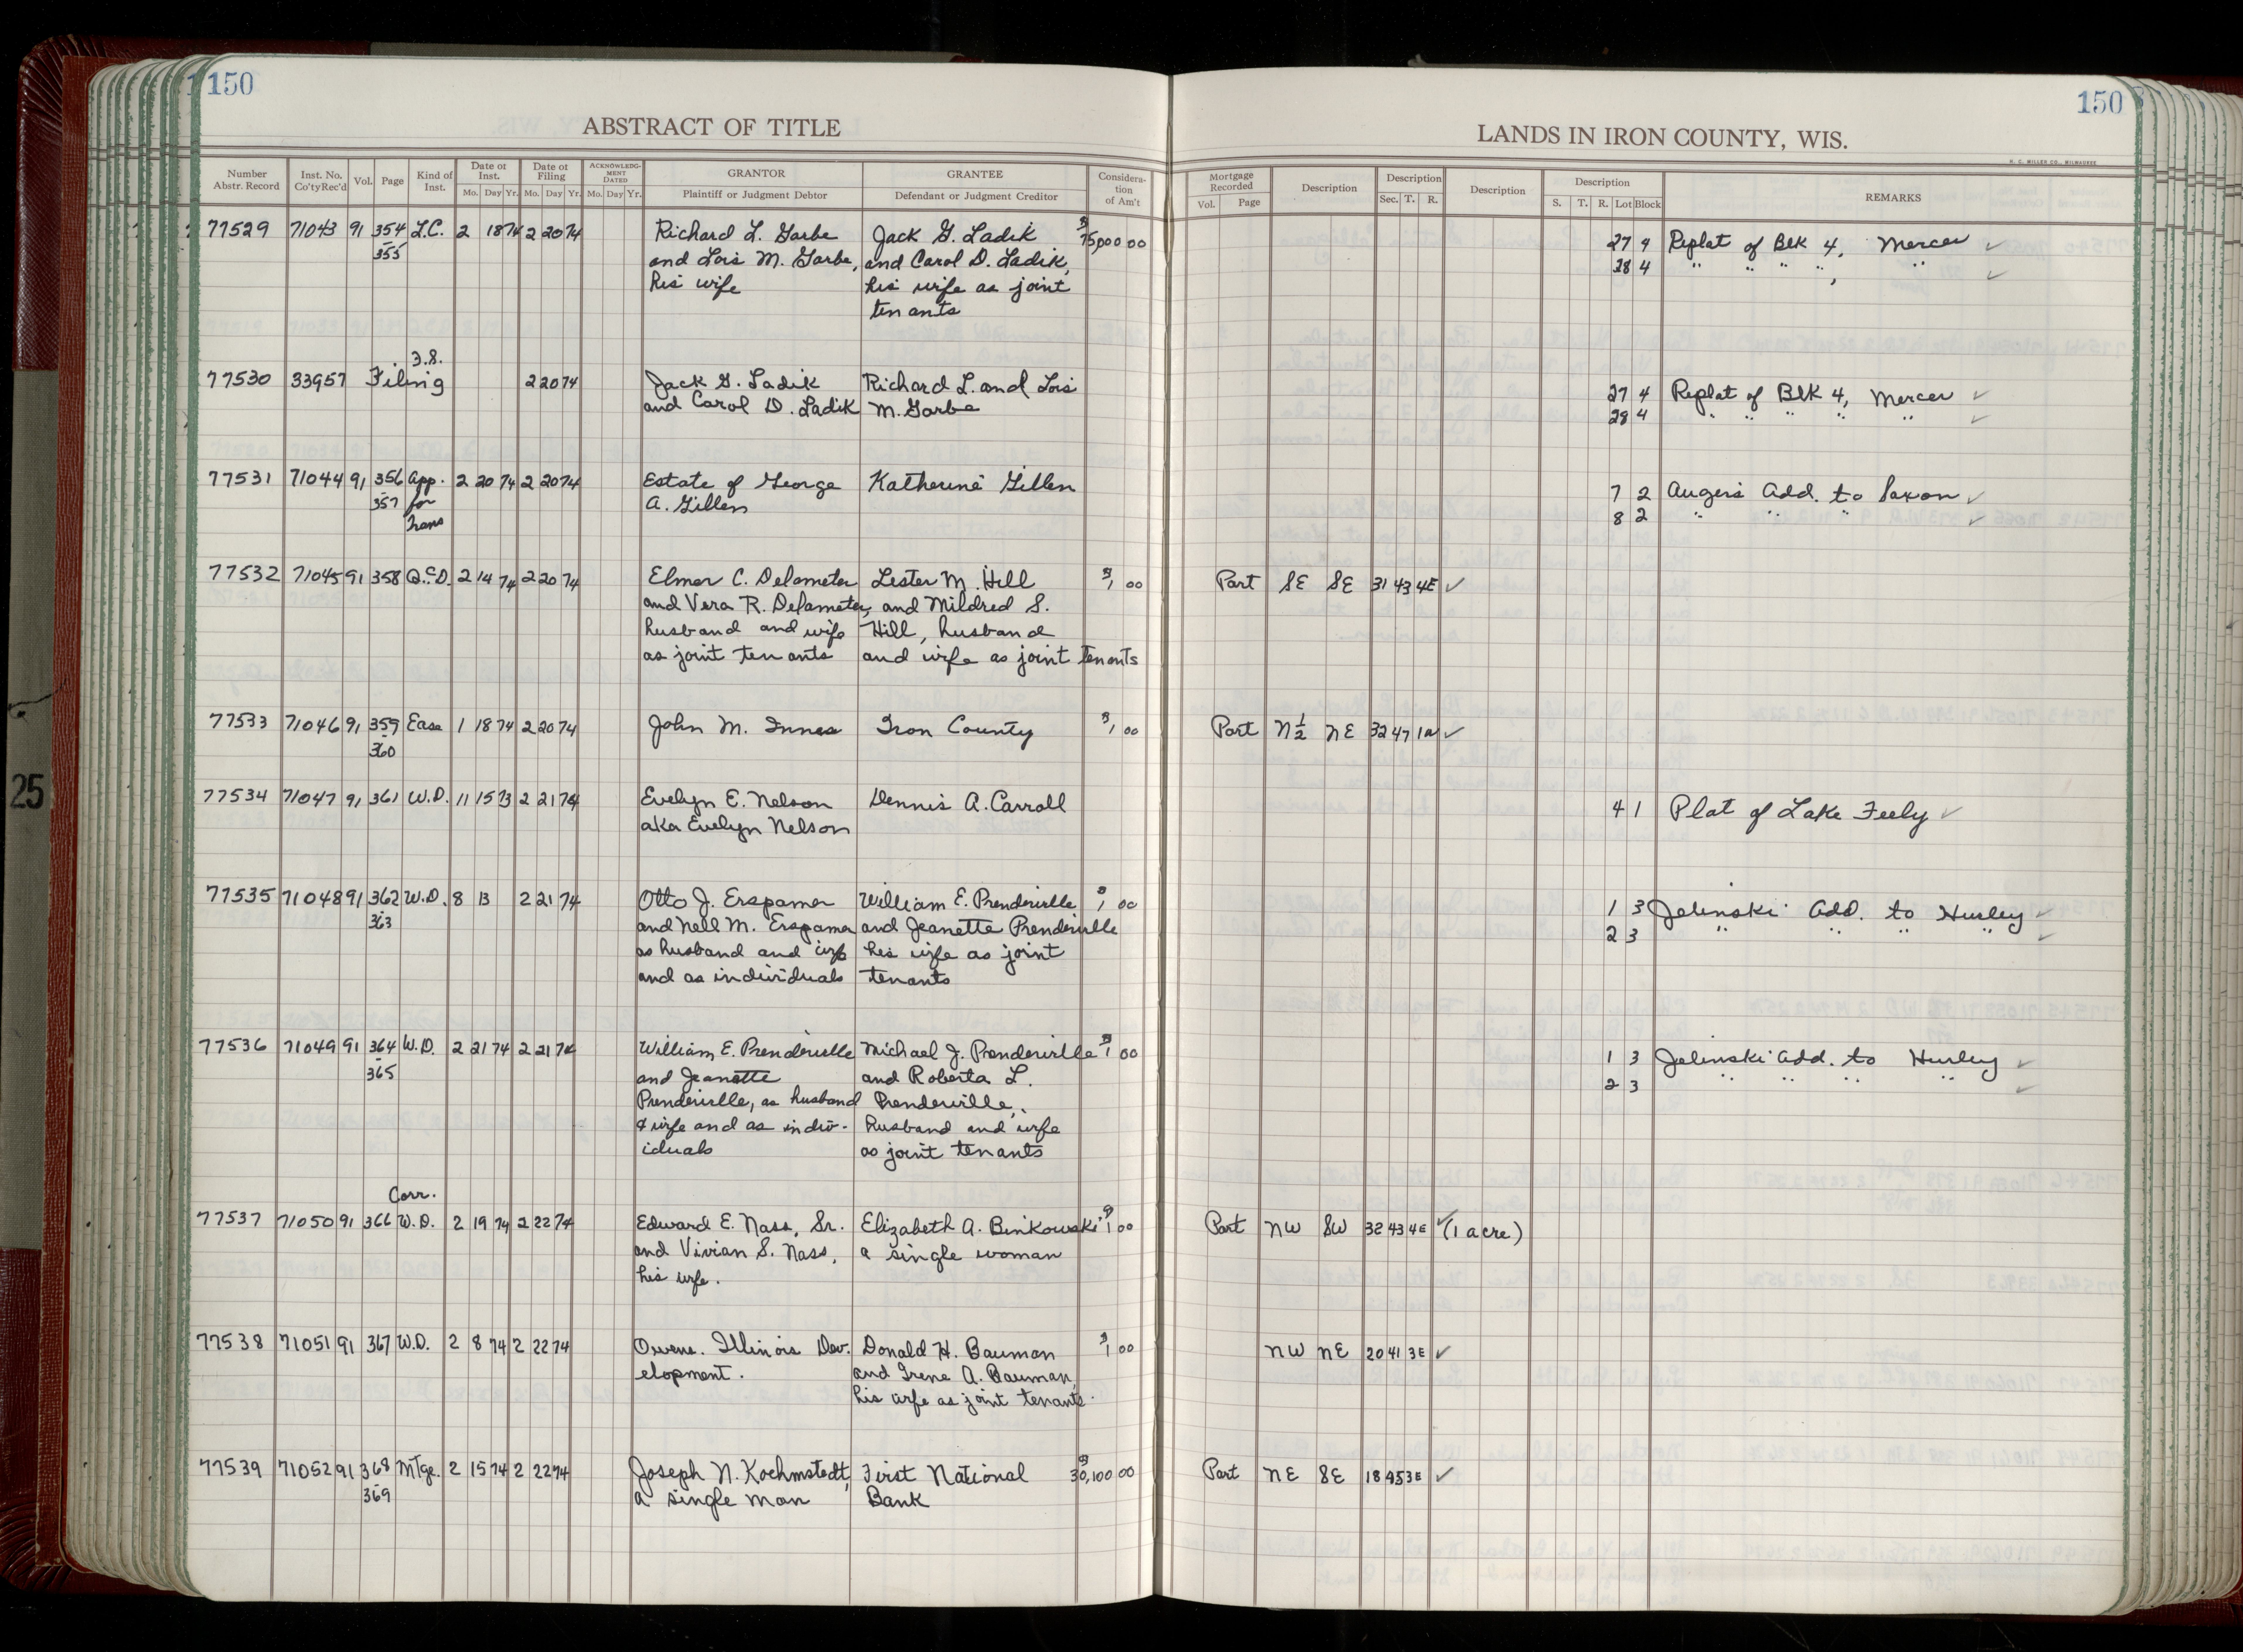 150
150
ABSTRACT OF TITLE
LANDS IN IRON COUNTY, WIS.
H. C. MILLER CO., MILWAUKEE
Number Abstr. Record | Inst. No. Co'ty Rec'd | Vol. | Page | Kind of Inst. | Date of Inst. Mo. Day Yr. | Date of Filing Mo. Day Yr. | ACKNOWLEDG-MENT DATED Mo. Day Yr. | GRANTOR Plaintiff or Judgment Debtor | GRANTEE Defendant or Judgment Creditor | Considera-tion of Am't
Mortgage Recorded Vol. Page | Description | Description Sec. T. R. | Description | Description S. T. R. Lot Block | REMARKS
77529 71043 91 354 L.C. 2 18 74 2 20 74 Richard L. Garbe Jack G. Ladik $75,000 00 27 4 Replat of Blk 4, Mercer ✓
- 355 and Lois M. Garbe, and Carol D. Ladik, 28 4 " " " ", " ✓
his wife his wife as joint
tenants
77530 33957 Filing 3.8. 2 20 74 Jack G. Ladik Richard L. and Lois 27 4 Replat of Blk 4, Mercer ✓
and Carol D. Ladik M. Garbe 28 4 " " " " " ✓
77531 71044 91 356 App. 2 20 74 2 20 74 Estate of George Katherine Gillen 7 2 Augers Add. to Saxon ✓
- 357 for A. Gillen 8 2 " " " " ✓
Trans
77532 71045 91 358 Q.C.D. 2 14 74 2 20 74 Elmer C. Delameter Lester M. Hill $1 00 Part SE SE 31 43 4E ✓
and Vera R. Delameter, and Mildred S.
husband and wife Hill, husband
as joint tenants and wife as joint tenants
77533 71046 91 359 Ease 1 18 74 2 20 74 John M. Innes Iron County $1 00 Part N½ NE 32 47 1E ✓
- 360
77534 71047 91 361 W.D. 11 15 73 2 21 74 Evelyn E. Nelson Dennis A. Carroll 4 1 Plat of Lake Feely ✓
aka Evelyn Nelson
77535 71048 91 362 W.D. 8 13 2 21 74 Otto J. Erspamer William E. Prenderville $1 00 1 3 Jelinski Add. to Hurley ✓
- 363 and Nell M. Erspamer and Jeanette Prenderville 2 3 " " " " ✓
as husband and wife his wife as joint
and as individuals tenants
77536 71049 91 364 W.D. 2 21 74 2 21 74 William E. Prenderville Michael J. Prenderville $1 00 1 3 Jelinski Add. to Hurley ✓
- 365 and Jeanette and Roberta L. 2 3 " " " " ✓
Prenderville, as husband Prenderville,
& wife and as indiv- husband and wife
iduals as joint tenants
Corr.
77537 71050 91 366 W.D. 2 19 74 2 22 74 Edward E. Nass, Sr. Elizabeth A. Binkowski $1 00 Part NW SW 32 43 4E ✓ (1 acre)
and Vivian S. Nass, a single woman
his wife.
77538 71051 91 367 W.D. 2 8 74 2 22 74 Owens. Illinois Dev- Donald H. Bauman $1 00 NW NE 20 41 3E ✓
elopment. and Irene A. Bauman,
his wife as joint tenants.
77539 71052 91 368 Mtge. 2 15 74 2 22 74 Joseph N. Koehmstedt, First National $30,100 00 Part NE SE 18 45 3E ✓
- 369 a single man Bank
25